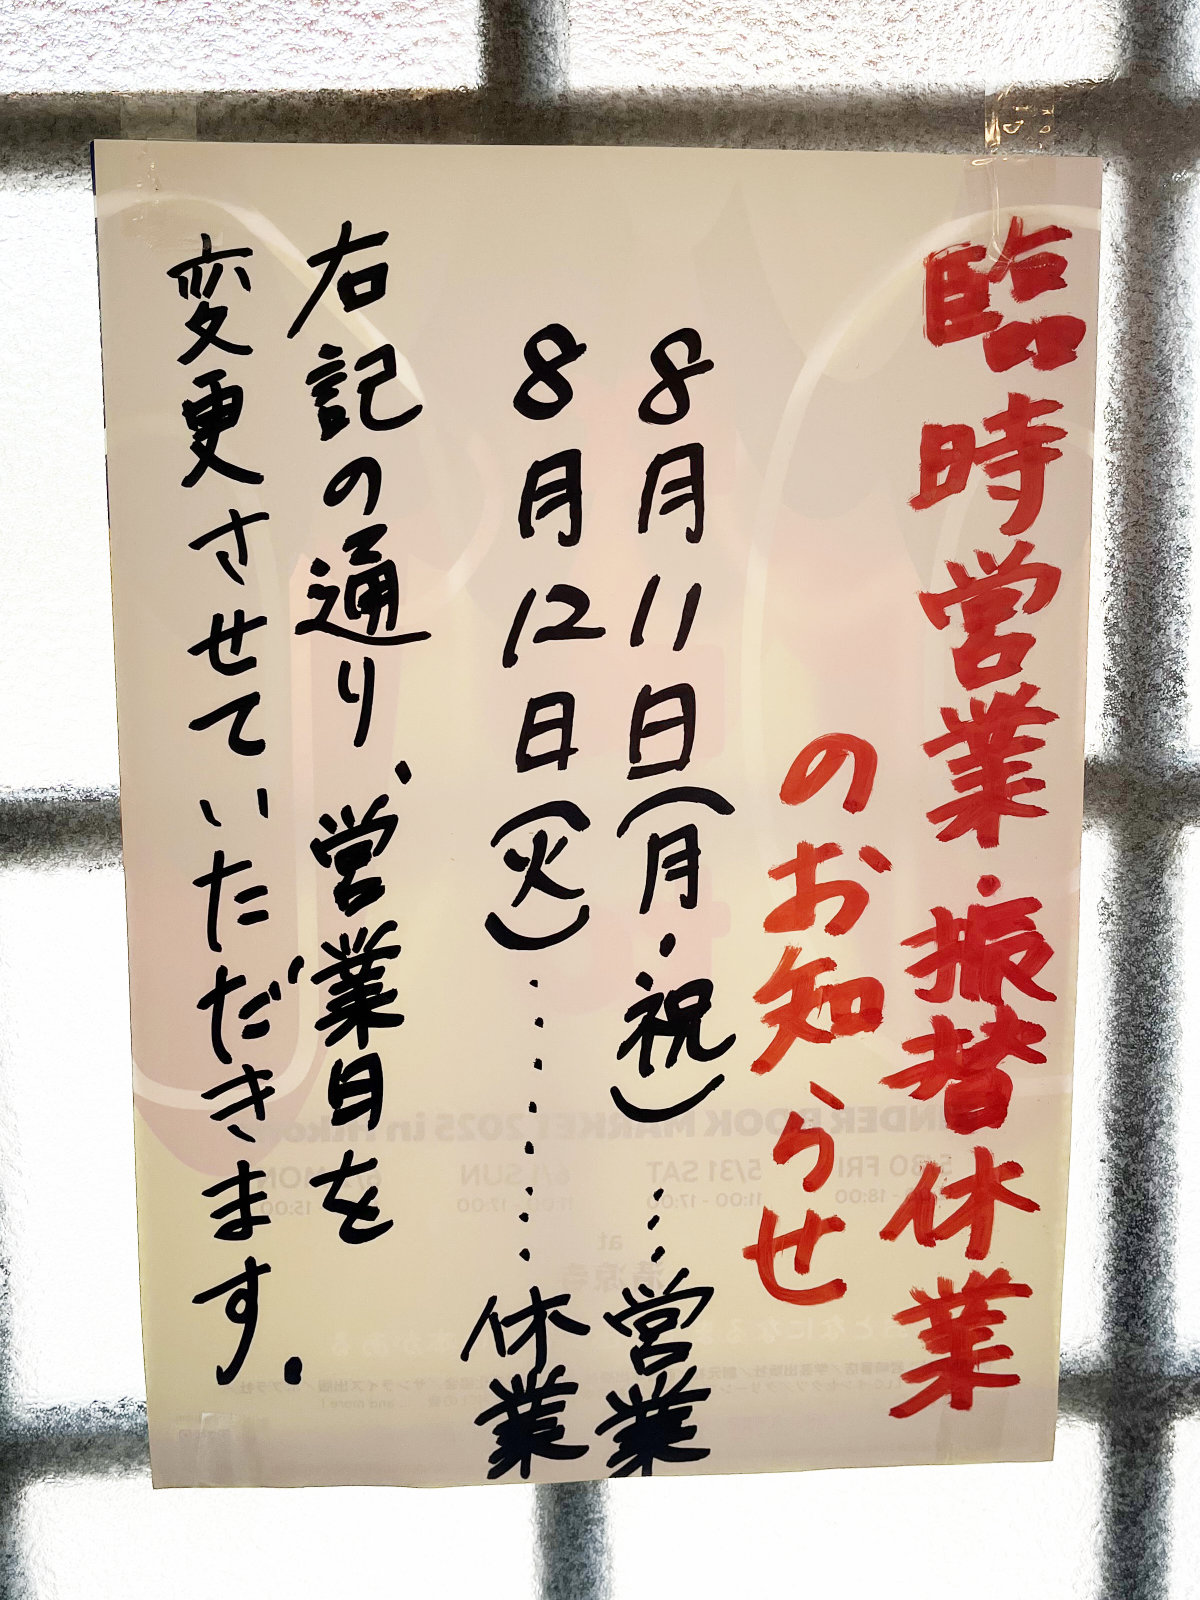 臨時営業・振替休業
のお知らせ
8月11日(月・祝)……営業
8月12日(火)…………休業
右記の通り、営業日を
変更させていただきます.
BOOK MARKET 2025 in
5/30 FRI
5/31 SAT
11:00 - 17:00
6/1 SUN
11:00 - 17:00
at